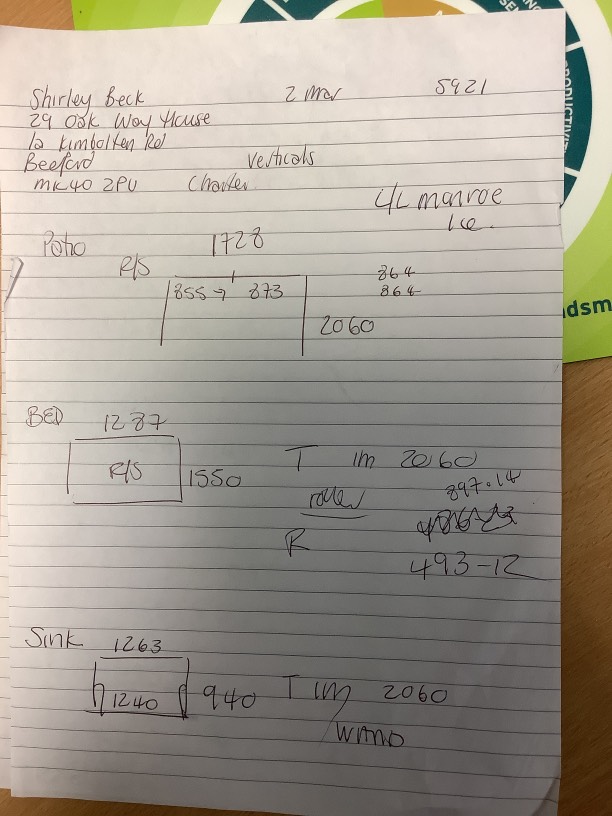 Shirley Beck 2 mar 5921
29 Oak Way House
12 Kimbolten Rd
Beeford Verticals
MK40 2PU Charter
C/L manroe
Ice.
Patio 1728
R/S
855 → 873 864
864
2060
BED 1287
R/S 1550
T 1m 2060
roller 897.14
R 493-12
Sink 1263
1240 940 T 1m 2060
WAND
PRODUCTIVITY
dsm